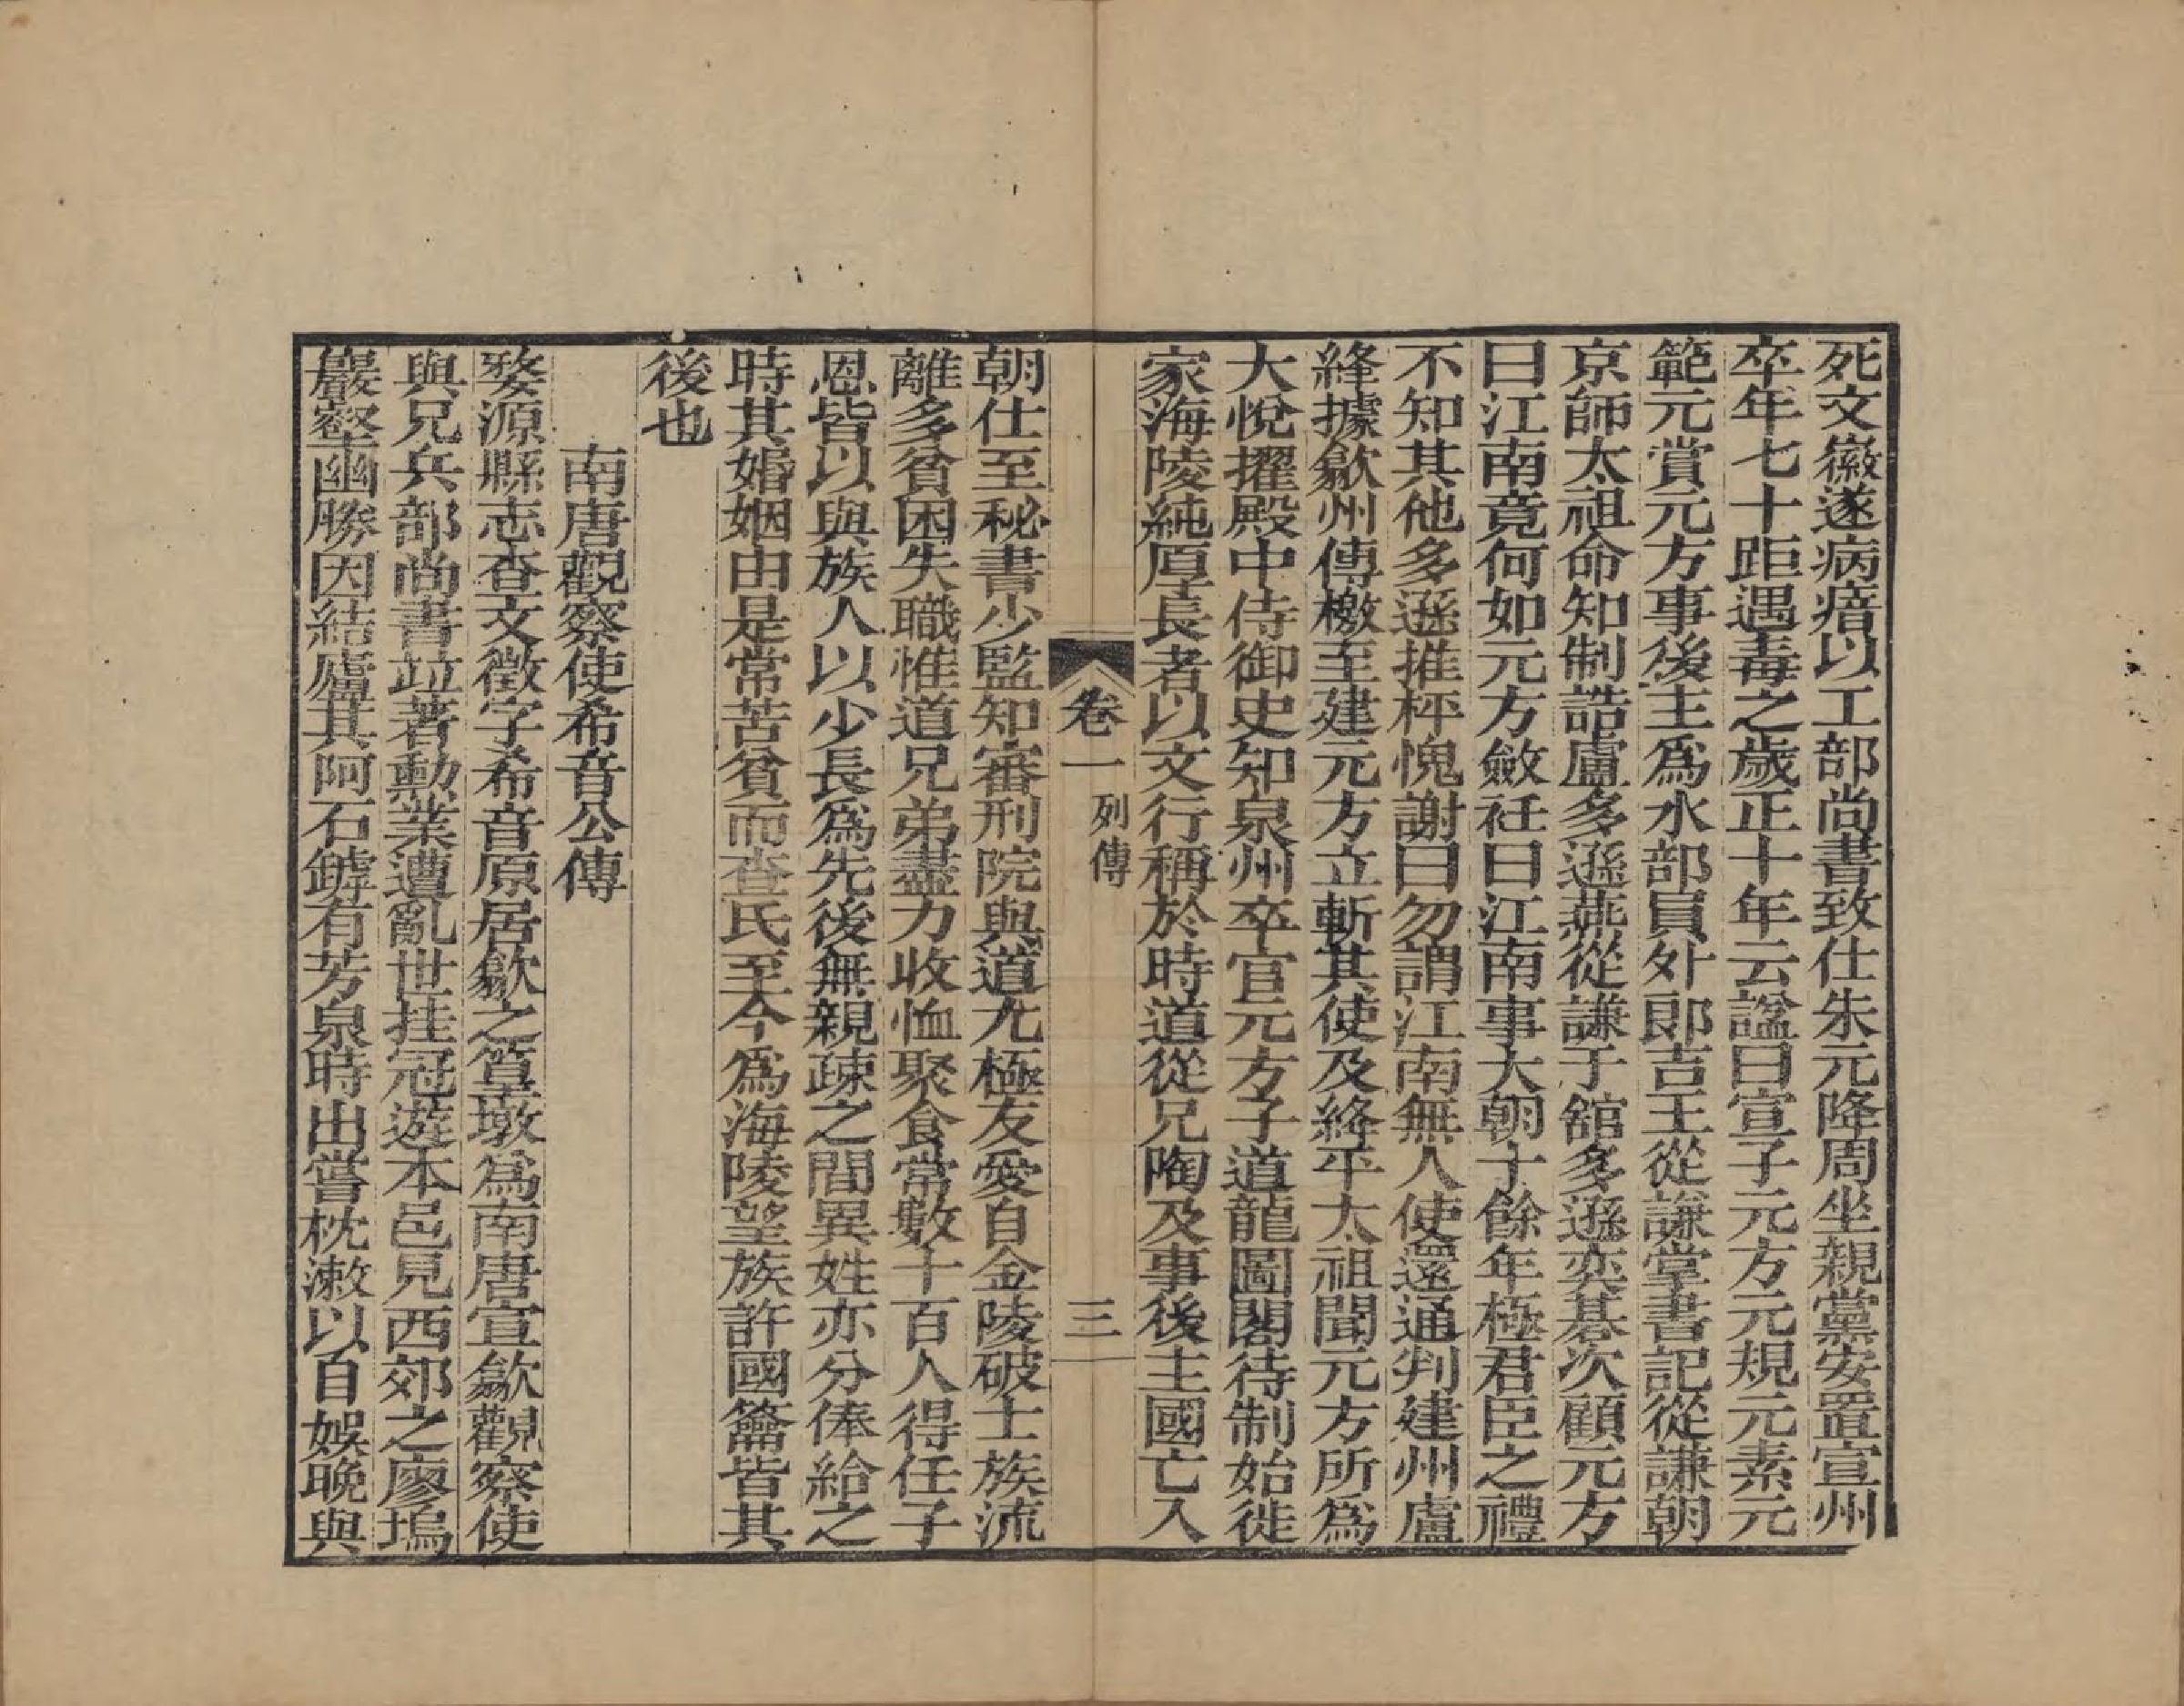 死文徽遂病瘖以工部尚書致仕朱元降周坐親黨安置宣州
卒年七十距遇毒之歲正十年云諡曰宣子元方元規元素元
範元賞元方事後主爲水部員外郎吉王從謙掌書記從謙朝
京師太祖命知制誥盧多遜燕從謙于舘多遜奕棊次顧元方
曰江南竟何如元方斂衽曰江南事大朝十餘年極君臣之禮
不知其他多遜推枰愧謝曰勿謂江南無人使還通判建州盧
絳據歙州傳檄至建元方立斬其使及絳平太祖聞元方所爲
大悅擢殿中侍御史知泉州卒官元方子道龍圖閣待制始徙
家海陵純厚長者以文行稱於時道從兄陶及事後主國亡入
卷一 列傳 三
朝仕至秘書少監知審刑院與道尤極友愛自金陵破士族流
離多貧困失職惟道兄弟盡力收恤聚食常數十百人得任子
恩皆以與族人以少長爲先後無親疎之間異姓亦分俸給之
時其婚姻由是常苦貧而查氏至今爲海陵望族許國籥皆其
後也
南唐觀察使希音公傳
婺源縣志查文徵字希音原居歙之篁墩爲南唐宣歙觀察使
與兄兵部尚書竝著勳業遭亂世挂冠遊本邑見西郊之廖塢
巖壑幽勝因結廬其阿石罅有芳泉時出嘗枕漱以自娛晚與